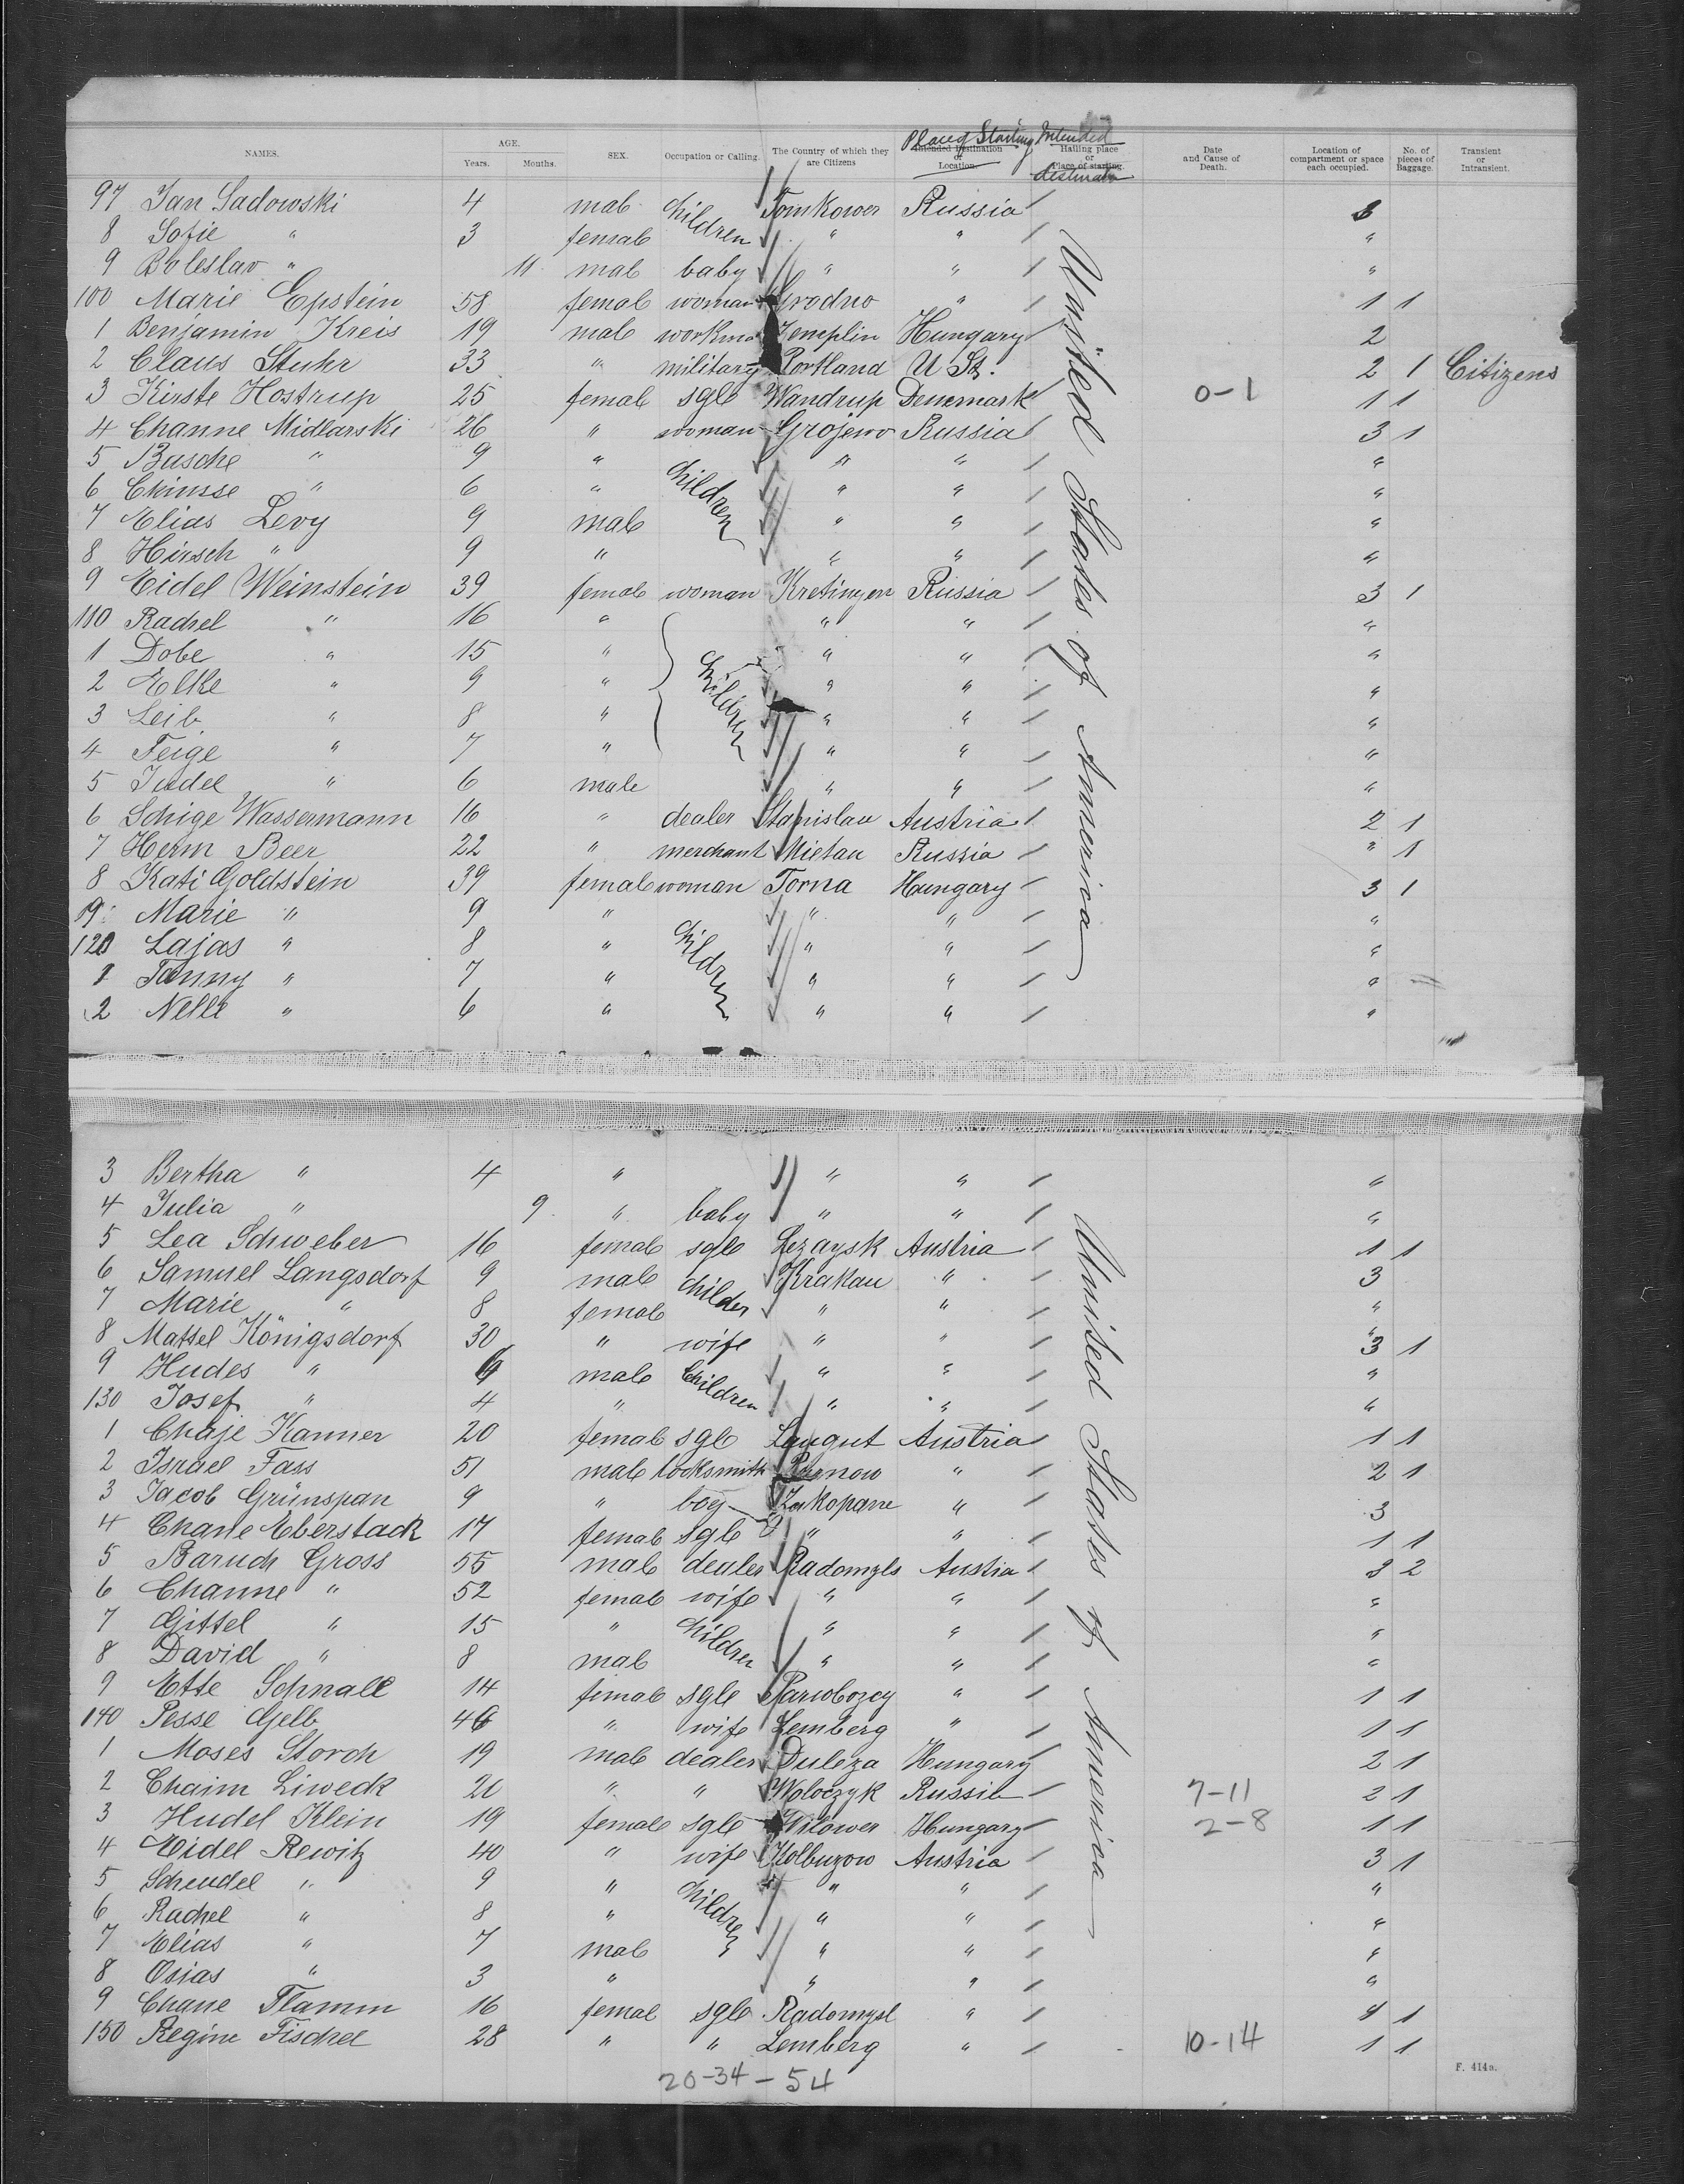 Place of Starting Intended
NAMES. AGE. Years. Months. SEX. Occupation or Calling. The Country of which they are Citizens Intended Destination or Location. Hailing place or Place of starting. Date and Cause of Death. Location of compartment or space each occupied. No. of pieces of Baggage. Transient or Intransient.
destination
97 Jan Sadowski 4 male children Tomkower Russia / 3
8 Sofie " 3 female " " / "
9 Boleslav " 11 male baby " " / "
100 Marie Epstein 58 female woman Grodno " / 1 1
1 Benjamin Kreis 19 male workma Zemplin Hungary / 2
2 Claus Stuhr 33 " military Portland U St. 2 1 Citizens
3 Kirste Hostrup 25 female sgle Wandrup Denemark 0-1 1 1
4 Channe Midlarski 26 " woman Grojewo Russia / 3 1
5 Basche " 9 " children " " / "
6 Chimse " 6 " " " / "
7 Elias Levy 9 male " " / "
8 Hirsch " 9 " " " / "
9 Eidel Weinstein 39 female woman Kretingen Russia / 3 1
110 Rachel " 16 " " " / "
1 Dobe " 15 " children " " / "
2 Elke " 9 " " " / "
3 Leib " 8 " " " / "
4 Feige " 7 " " " / "
5 Judel " 6 male " " / "
6 Schige Wassermann 16 " dealer Stanislau Austria / 2 1
7 Herm Beer 22 " merchant Mietau Russia / " 1
8 Kati Goldstein 39 female woman Torna Hungary / 3 1
19 Marie " 9 " " " / "
120 Lajas " 8 " children " " / "
1 Fanny " 7 " " " / "
2 Nelli " 6 " " " / "
United States of America
3 Bertha " 4 " " " / "
4 Julia " 9 " baby " " / "
5 Lea Schweber 16 female sgle Lezaysk Austria / 1 1
6 Samuel Langsdorf 9 male childer Krakau " / 3
7 Marie " 8 female " " / "
8 Mattel Königsdorf 30 " wife " " / 3 1
9 Hudes " 6 male Children " " / "
130 Josef " 4 " " " / "
1 Chaje Kanner 20 female sgle Langut Austria / 1 1
2 Israel Fass 51 male locksmith " / 2 1
3 Jacob Grünspan 9 " boy Zakopane " / 3
4 Chane Eberstack 17 female sgle " " / 1 1
5 Baruch Gross 55 male dealer Radomyls Austia / 3 2
6 Channe " 52 female wife " " / "
7 Gittel " 15 " children " " / "
8 David " 8 male " " / "
9 Ette Schnall 14 female sgle " / 1 1
140 Pesse Gelb 46 " wife Lemberg " / 1 1
1 Moses Storch 19 male dealer Duleza Hungary 2 1
2 Chaim Liweck 20 " " Woloczyk Russia / 7-11 2 1
3 Hudel Klein 19 female sgle Hungary 2-8 1 1
4 Eidel Rewitz 40 " wife Kolbuzow Austria / 3 1
5 Scheudel " 9 " children " " / "
6 Rachel " 8 " " " / "
7 Elias " 7 male " " / "
8 Osias " 3 " " " / "
9 Chane Flamm 16 female sgle Radomysl " / 1 1
150 Regine Fischel 28 " " Lemberg " / 10-14 1 1
United States of America
20-34-54
F. 414a.